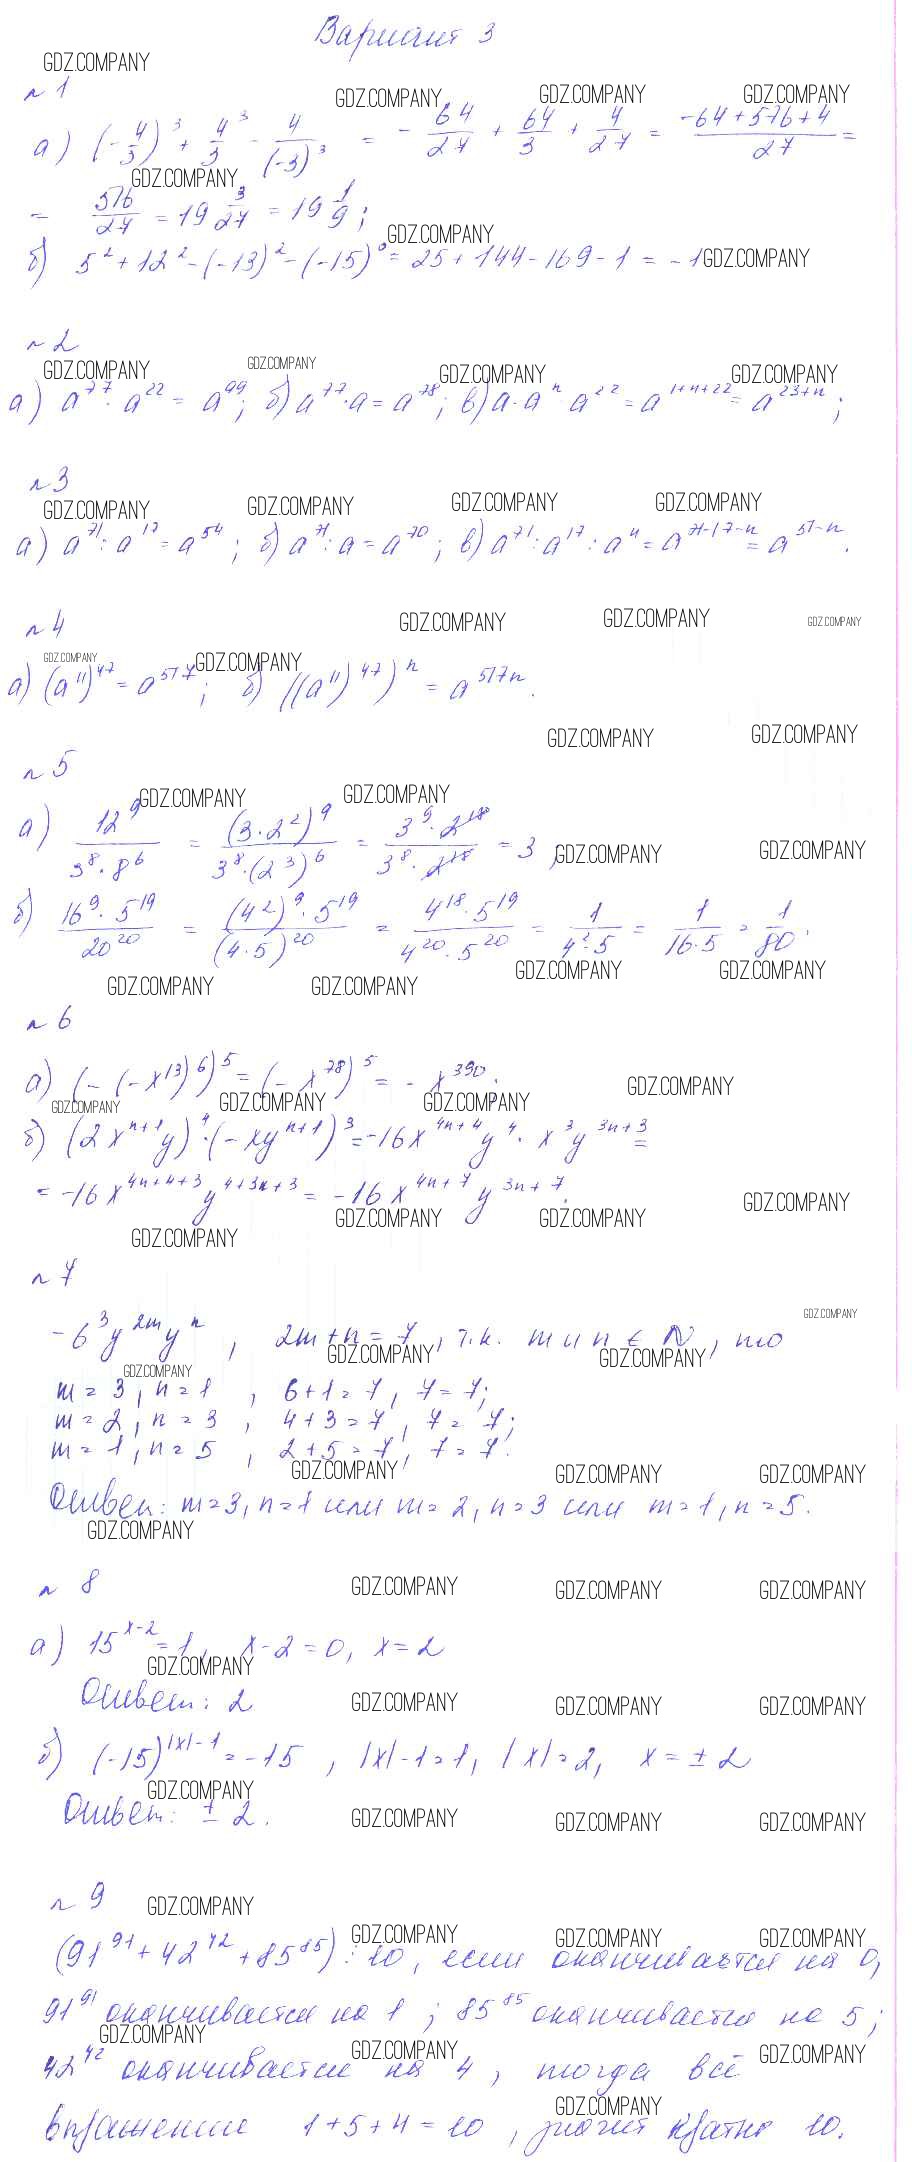 Вариант 3
GDZ.COMPANY
№1
GDZ.COMPANY GDZ.COMPANY GDZ.COMPANY
а) (-4/3)³ + 4³/3 - 4/(-3)³ = - 64/27 + 64/3 + 4/27 = (-64+576+4)/27 =
GDZ.COMPANY
= 516/27 = 19 3/27 = 19 1/9;
GDZ.COMPANY
б) 5² + 12² - (-13)² - (-15)⁰ = 25 + 144 - 169 - 1 = -1 GDZ.COMPANY
№2
GDZ.COMPANY GDZ.COMPANY GDZ.COMPANY GDZ.COMPANY
а) a^77 · a^22 = a^99; б) a^77 · a = a^78; в) a · a^n a^22 = a^(1+n+22) = a^(23+n);
№3
GDZ.COMPANY GDZ.COMPANY GDZ.COMPANY GDZ.COMPANY
а) a^71 : a^17 = a^54; б) a^71 : a = a^70; в) a^71 : a^17 : a^n = a^(71-17-n) = a^(51-n).
№4
GDZ.COMPANY GDZ.COMPANY GDZ.COMPANY
GDZ.COMPANY GDZ.COMPANY
а) (a^11)^47 = a^517; б) ((a^11)^47)^n = a^(517n).
GDZ.COMPANY GDZ.COMPANY
№5
GDZ.COMPANY GDZ.COMPANY
а) 12^9/(3^8 · 8^6) = (3·2²)^9/(3^8 · (2³)^6) = (3^9 · 2^18)/(3^8 · 2^18) = 3 GDZ.COMPANY GDZ.COMPANY
б) (16^9 · 5^19)/20^20 = ((4²)^9 · 5^19)/(4·5)^20 = (4^18 · 5^19)/(4^20 · 5^20) = 1/(4²·5) = 1/(16·5) = 1/80.
GDZ.COMPANY GDZ.COMPANY GDZ.COMPANY GDZ.COMPANY
№6
а) (-(-x^13)^6)^5 = (-x^78)^5 = -x^390; GDZ.COMPANY
GDZ.COMPANY GDZ.COMPANY GDZ.COMPANY
б) (2x^(n+1)y)^4 · (-xy^(n+1))^3 = -16x^(4n+4)y^4 · x^3y^(3n+3) =
= -16x^(4n+4+3)y^(4+3n+3) = -16x^(4n+7)y^(3n+7).
GDZ.COMPANY GDZ.COMPANY GDZ.COMPANY
GDZ.COMPANY
№7
GDZ.COMPANY
-6³y^(2m)y^n, 2m+n=7, т.к. m и n ∈ N, то
GDZ.COMPANY GDZ.COMPANY
GDZ.COMPANY
m=3, n=1, 6+1=7, 7=7;
m=2, n=3, 4+3=7, 7=7;
m=1, n=5, 2+5=7, 7=7.
GDZ.COMPANY GDZ.COMPANY GDZ.COMPANY
Ответ: m=3, n=1 или m=2, n=3 или m=1, n=5.
GDZ.COMPANY
№8
GDZ.COMPANY GDZ.COMPANY GDZ.COMPANY
а) 15^(x-2) = 1, x-2=0, x=2
GDZ.COMPANY
Ответ: 2
GDZ.COMPANY GDZ.COMPANY GDZ.COMPANY
б) (-15)^(|x|-1) = -15, |x|-1=1, |x|=2, x=±2
GDZ.COMPANY
Ответ: ±2.
GDZ.COMPANY GDZ.COMPANY GDZ.COMPANY
№9
GDZ.COMPANY
GDZ.COMPANY GDZ.COMPANY GDZ.COMPANY
(91^91 + 42^42 + 85^85) ⋮ 10, если оканчивается на 0,
91^91 оканчивается на 1; 85^85 оканчивается на 5;
GDZ.COMPANY GDZ.COMPANY GDZ.COMPANY
42^42 оканчивается на 4, тогда всё
GDZ.COMPANY
выражение 1+5+4=10, значит кратно 10.